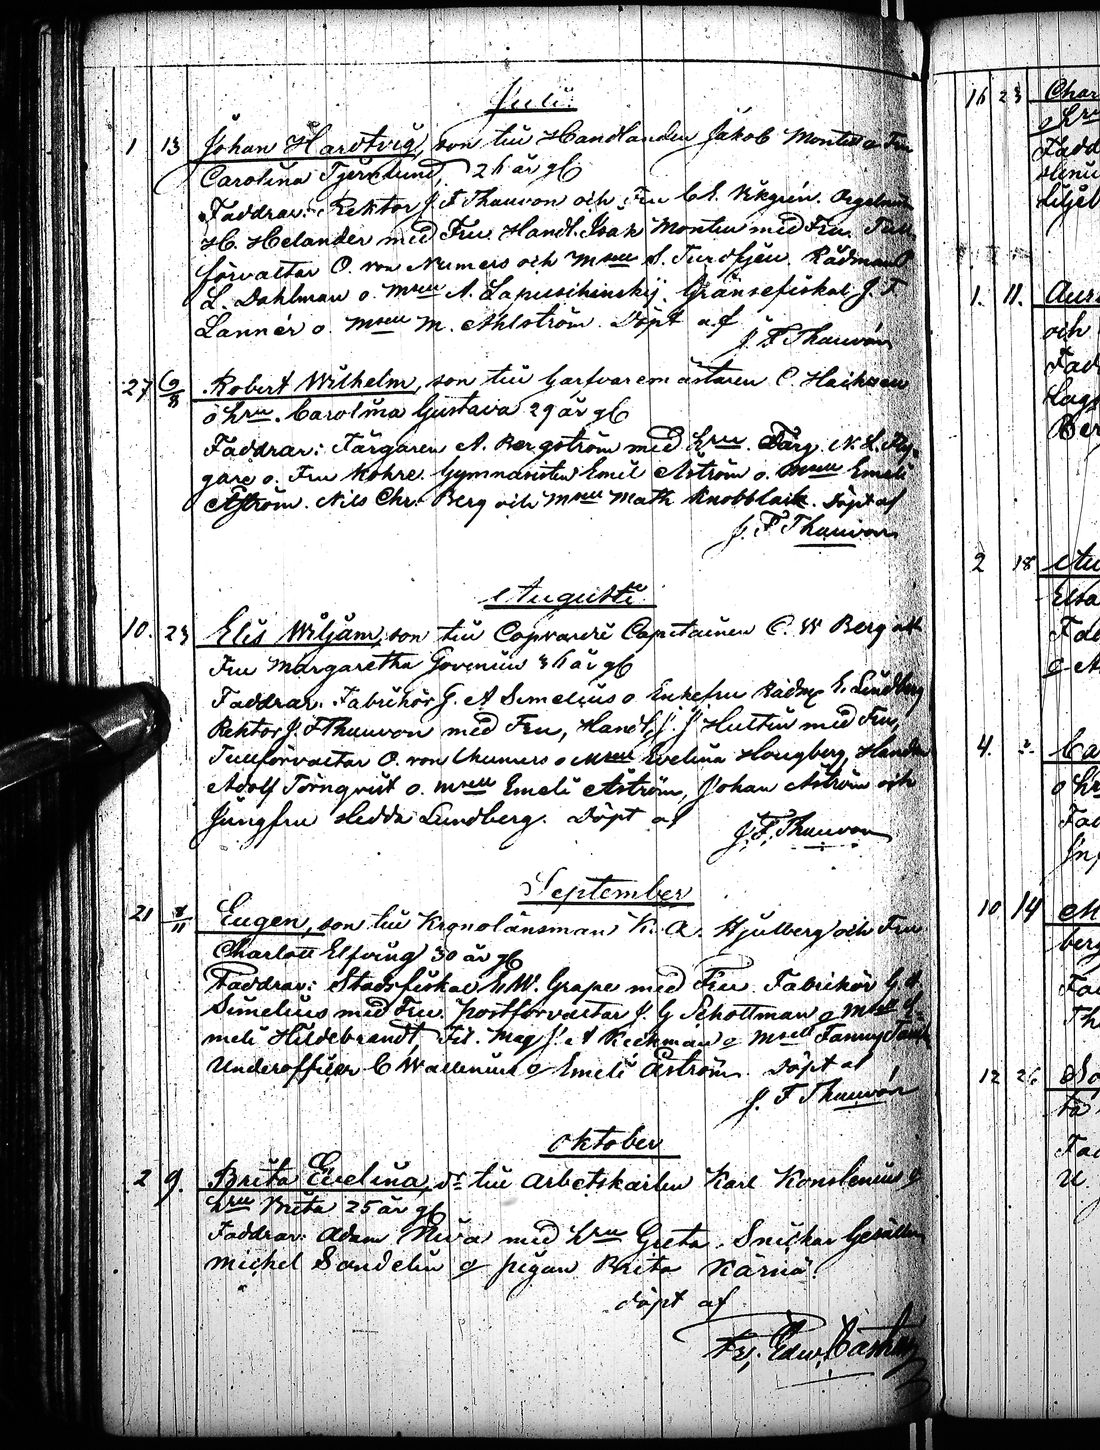 Juli.
1 13 Johan Hartvig, son till Handlanden Jakob Montell o Fru
Carolina Tjernlund, 26 år gl
Faddrar: Rektor J. F Thauvon och Fru C. E. Vikgrén. Orgelnist
H. Helander med Fru. Handl. Isak Montin med Fru. Tull-
förvaltar O. von Numers och Msell S. Rådmand
L. Dahlman o. Msell A. Lapuschinskij. Gränsefiskal J. F
Lannér o. Msell M. Ahlström. Döpt af
J. F Thauvón
27 6/8 Robert Wilhelm, son till Garfvaremästaren C.
o hru. Carolina Gustava 29 år gl
Faddrar: Färgaren A. Bergström med hru. Färg. N. L. Fly-
gare o. Fru Gymnasisten Emil Åström o. Msell Emeli
Åström. Nils Chr. Berg och Msell Math Knobblock. Döpt af
J. F Thauvon
Augusti.
10. 23 Elis Wiljam, son till Copvardi Capitainen C. W Berg och
Fru Margaretha Govenius 36 år gl
Faddrar: Fabrikör G. A Simelius o Enkefru Rådm E. Lundberg
Rektor J. F Thauvon med Fru, Handl. J. J Hultin med Fru,
Tullförvaltar O. von Numers o Msell Evelina Hougberg, Handn
Adolf Törnqvist o. Msell Emeli Åström, Johan Åström och
Jungfru Hedda Lundberg. Döpt af
J. F. Thauvon
September
21 8/11 Eugen, son till Kronolänsman K. A. Hjulberg och Fru
Charlott Elfving 30 år gl
Faddrar: Stadsfiskal E. W. Grape med Fru. Fabrikör G. A
Simelius med Fru. Postförvaltar J. G Schottman o Msell E-
meli Hildebrandt, Fil. Mag J. A Keckman o Msell Fanny
Underofficer C Wallenius o Emeli Åström. Döpt af
J. F Thauvón
Oktober
2 9. Brita Evelina, dr till Arbetskarlen Karl Konstenius o
hru Brita 25 år gl
Faddrar: Adam Niva med hru Greta. Snickar Gesällen
Michel Sandelin o pigan Brita Kärnä.
Döpt af
Fr. Edw. Castrén
16 23 Char
hru
Fadd
1. 11. Aur
och
Fad
Lag
Ber
2 18
Elsa
Fad
4. Ca
o hr
Fad
10 14
berg
Fad
Th
12 26
Fad